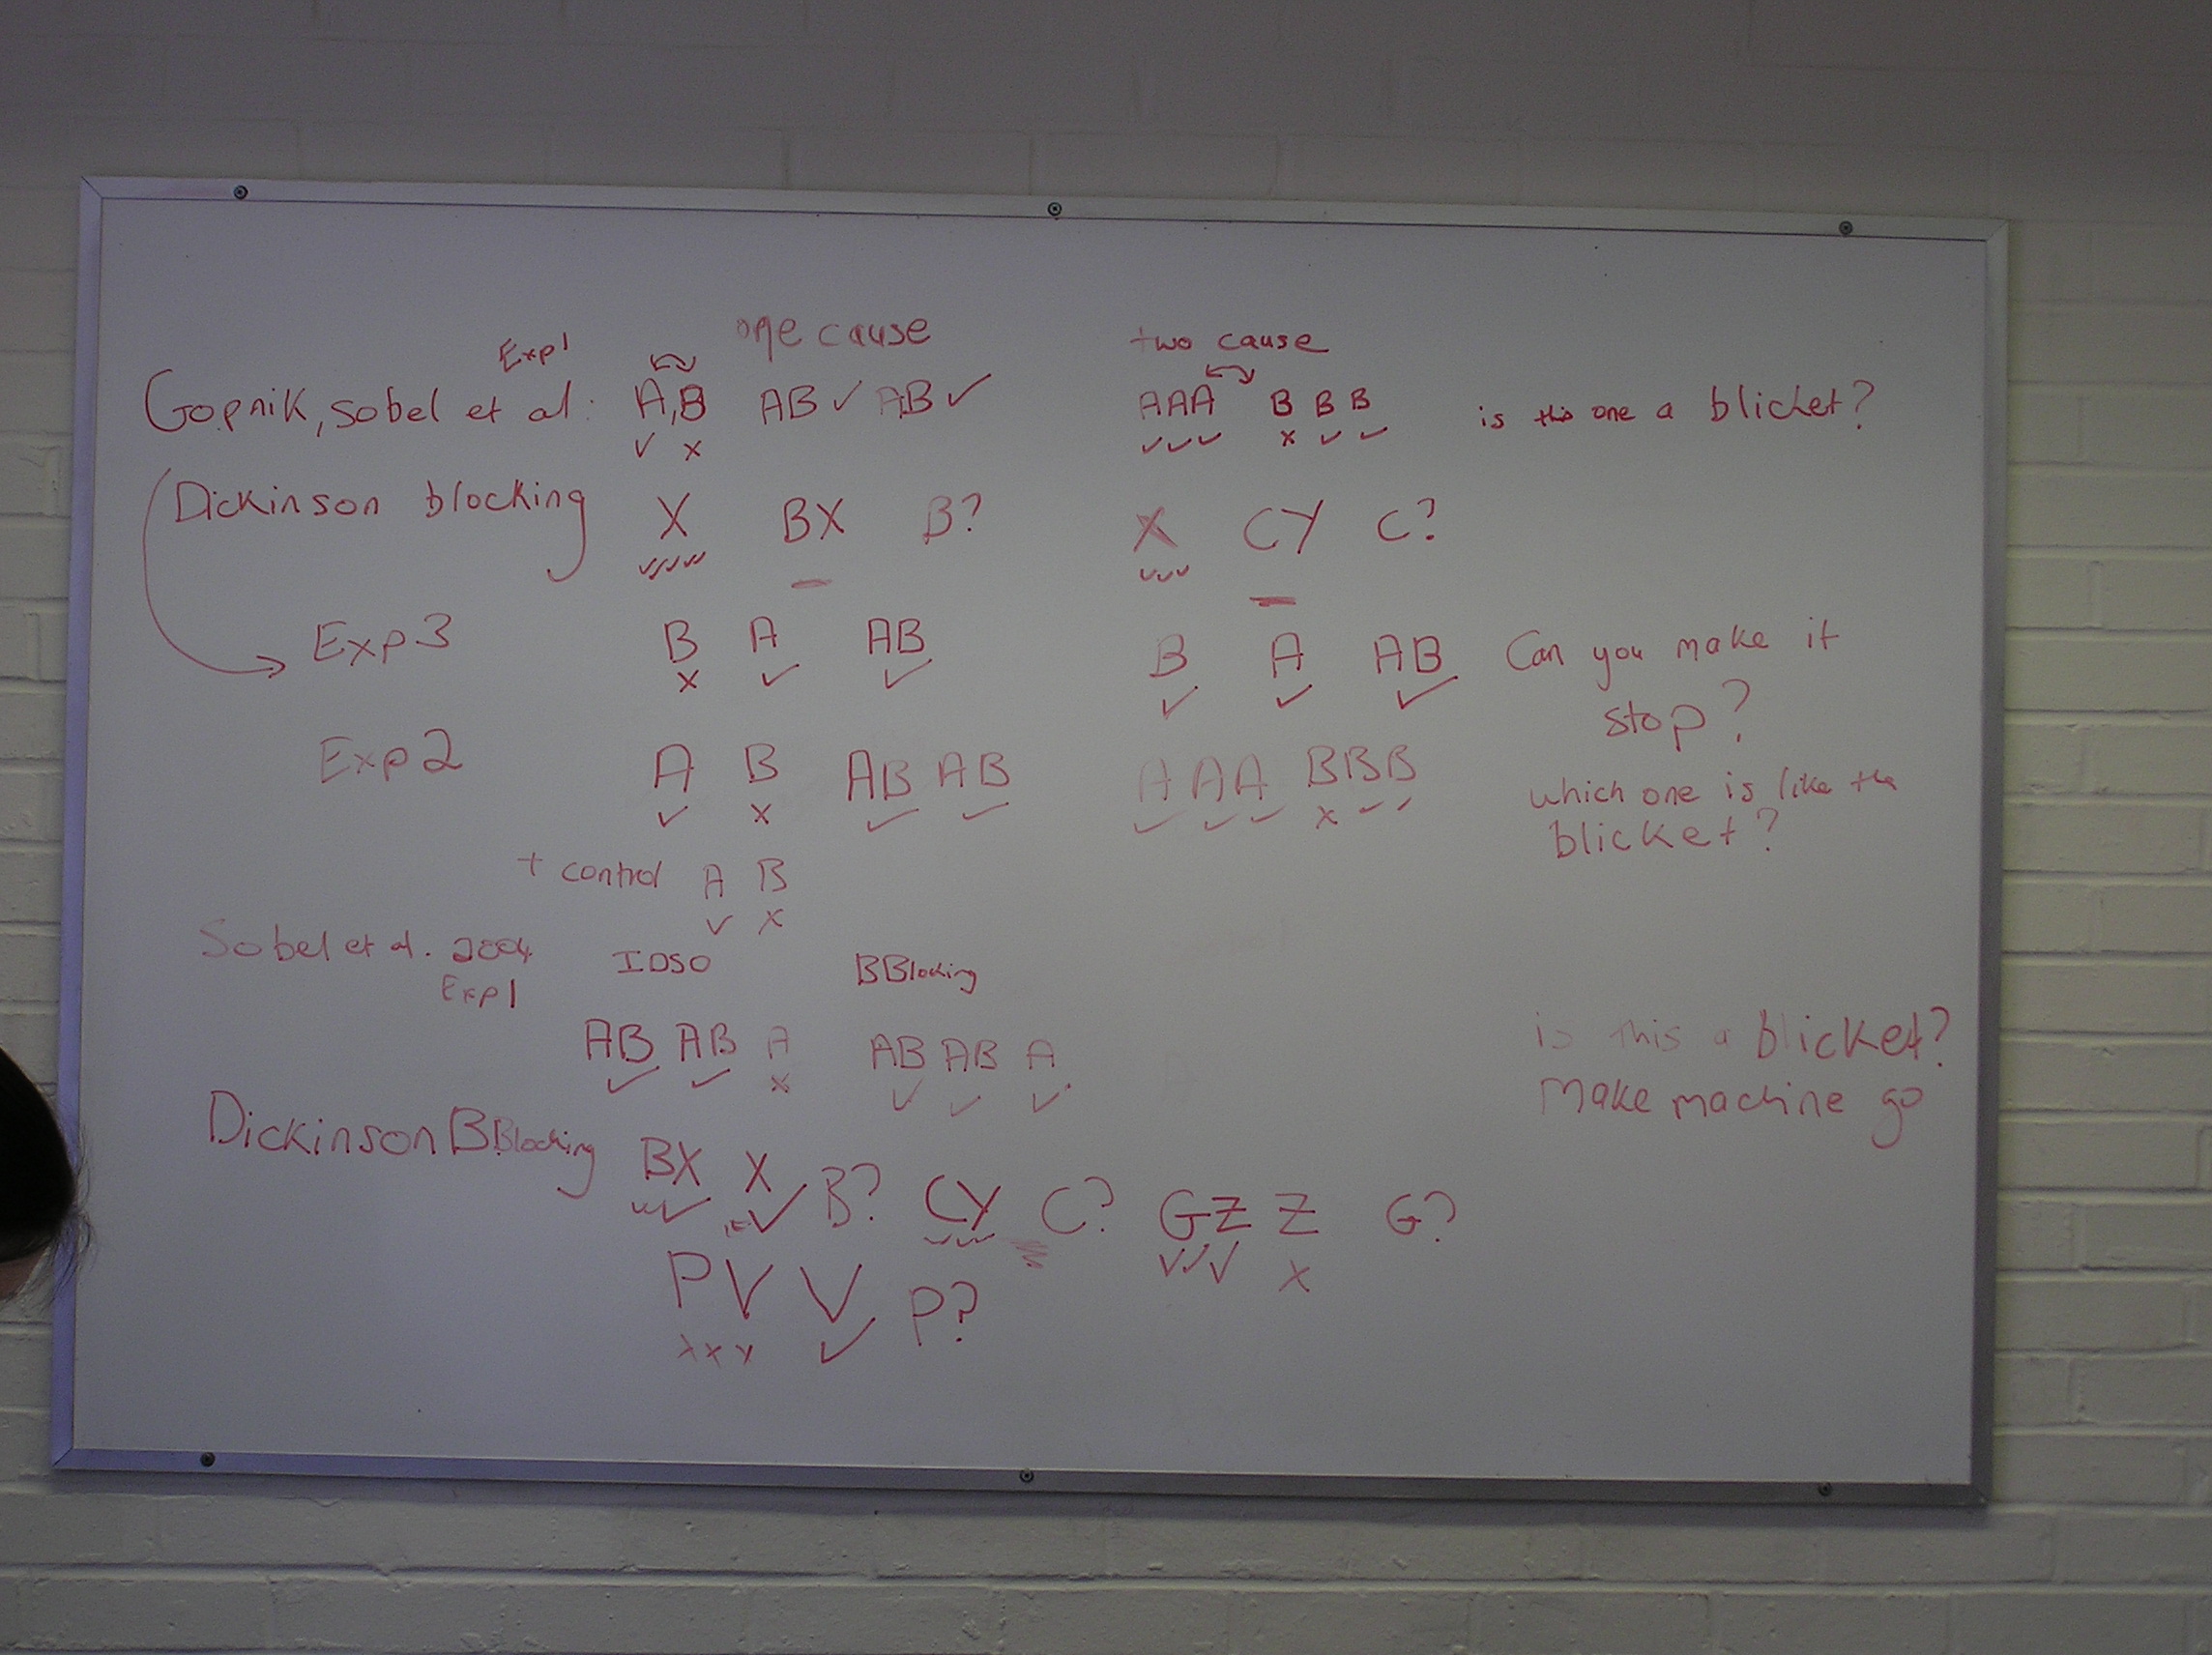 Exp1 one cause two cause
Gopnik, Sobel et al: A,B AB✓ AB✓ AAA B B B is this one a blicket?
✓ x ✓✓✓ x ✓ ✓
Dickinson blocking X BX B? X CY C?
✓✓✓✓ ✓✓✓
Exp3 B A AB B A AB Can you make it
x ✓ ✓ ✓ ✓ ✓ stop?
Exp2 A B AB AB A A A B B B which one is like the
✓ x ✓ ✓ ✓ ✓ ✓ x ✓ ✓ blicket?
+ control A B
✓ x
Sobel et al. 2004 IDSO BBlocking
Exp1
AB AB A AB AB A is this a blicket?
✓ ✓ x ✓ ✓ ✓ Make machine go
Dickinson BBlocking BX X B? CY C? GZ Z G?
✓✓✓ ✓ ✓✓✓ ✓✓✓ x
PV V P?
xxx ✓